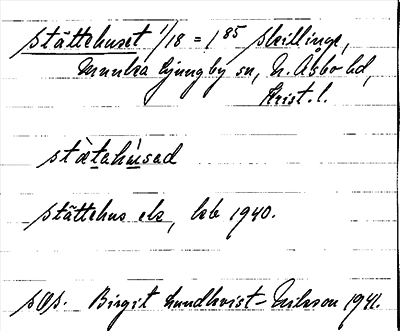 stättehuset 1/18 = 1⁸⁵ skillinge,
Munka Ljungby sn, N. Åsbo hd,
Krist. l.
stätahúsad
stättehus ek, lbk 1940.
sOs. Birgit Lundkvist-Nilsson 1941.